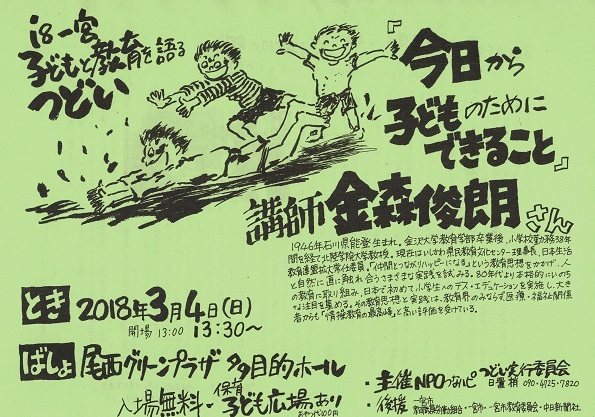 i8一宮
子どもと教育を語る
つどい
『今日から
子どものために
できること』
講師 金森俊朗さん
1946年石川県能登生まれ。金沢大学教育学部卒業後、小学校勤務38年
間を経て北陸学院大学教授。現在はいしかわ県民教育文化センター理事長、日本生活
教育連盟拡大常任委員。「仲間とつながりハッピーになる」という教育思想をかかげ、人
と自然に直に触れ合うさまざまな実践を試みる。80年代より本格的にいのち
の教育に取り組み、日本で初めて小学生へのデス・エデュケーションを実施し、大き
な注目を集める。その教育思想と実践は、教育界のみならず医療・福祉関係
者からも「情操教育の最高峰」と高い評価を受けている。
とき 2018年3月4日(日)
開場 13:00 13:30〜
ばしょ 尾西グリーンプラザ 多目的ホール
入場無料・保育 子ども広場あり
おやつ代100円
・主催 NPOつなハピ つどい実行委員会
090-4725-7820
・後援 一宮市・一宮市教育委員会・中日新聞社